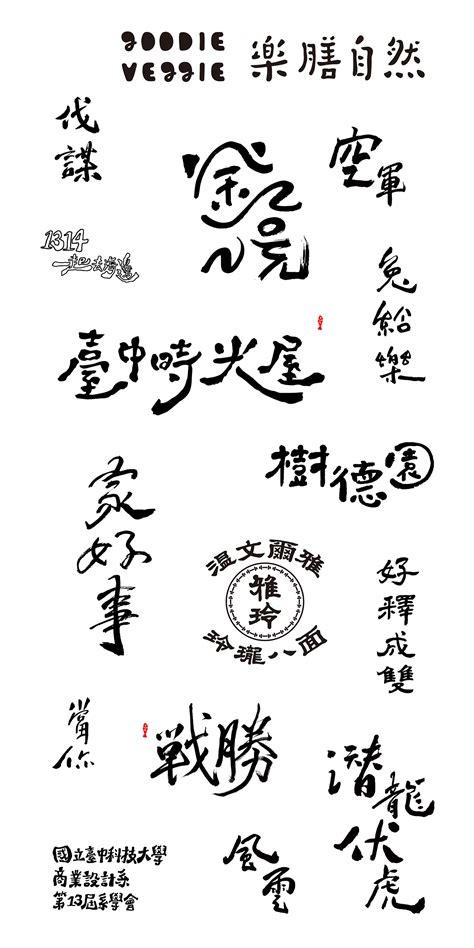 GOODIE
VEGGIE
樂膳自然
伐
謀
空軍
1314
一起去
兔
給
樂
臺中時光屋
樹德園
家
好
事
溫文爾雅
雅
玲
玲瓏八面
好
釋
成
雙
當
你
戰勝
潛龍
伏虎
風雲
國立臺中科技大學
商業設計系
第13屆系學會